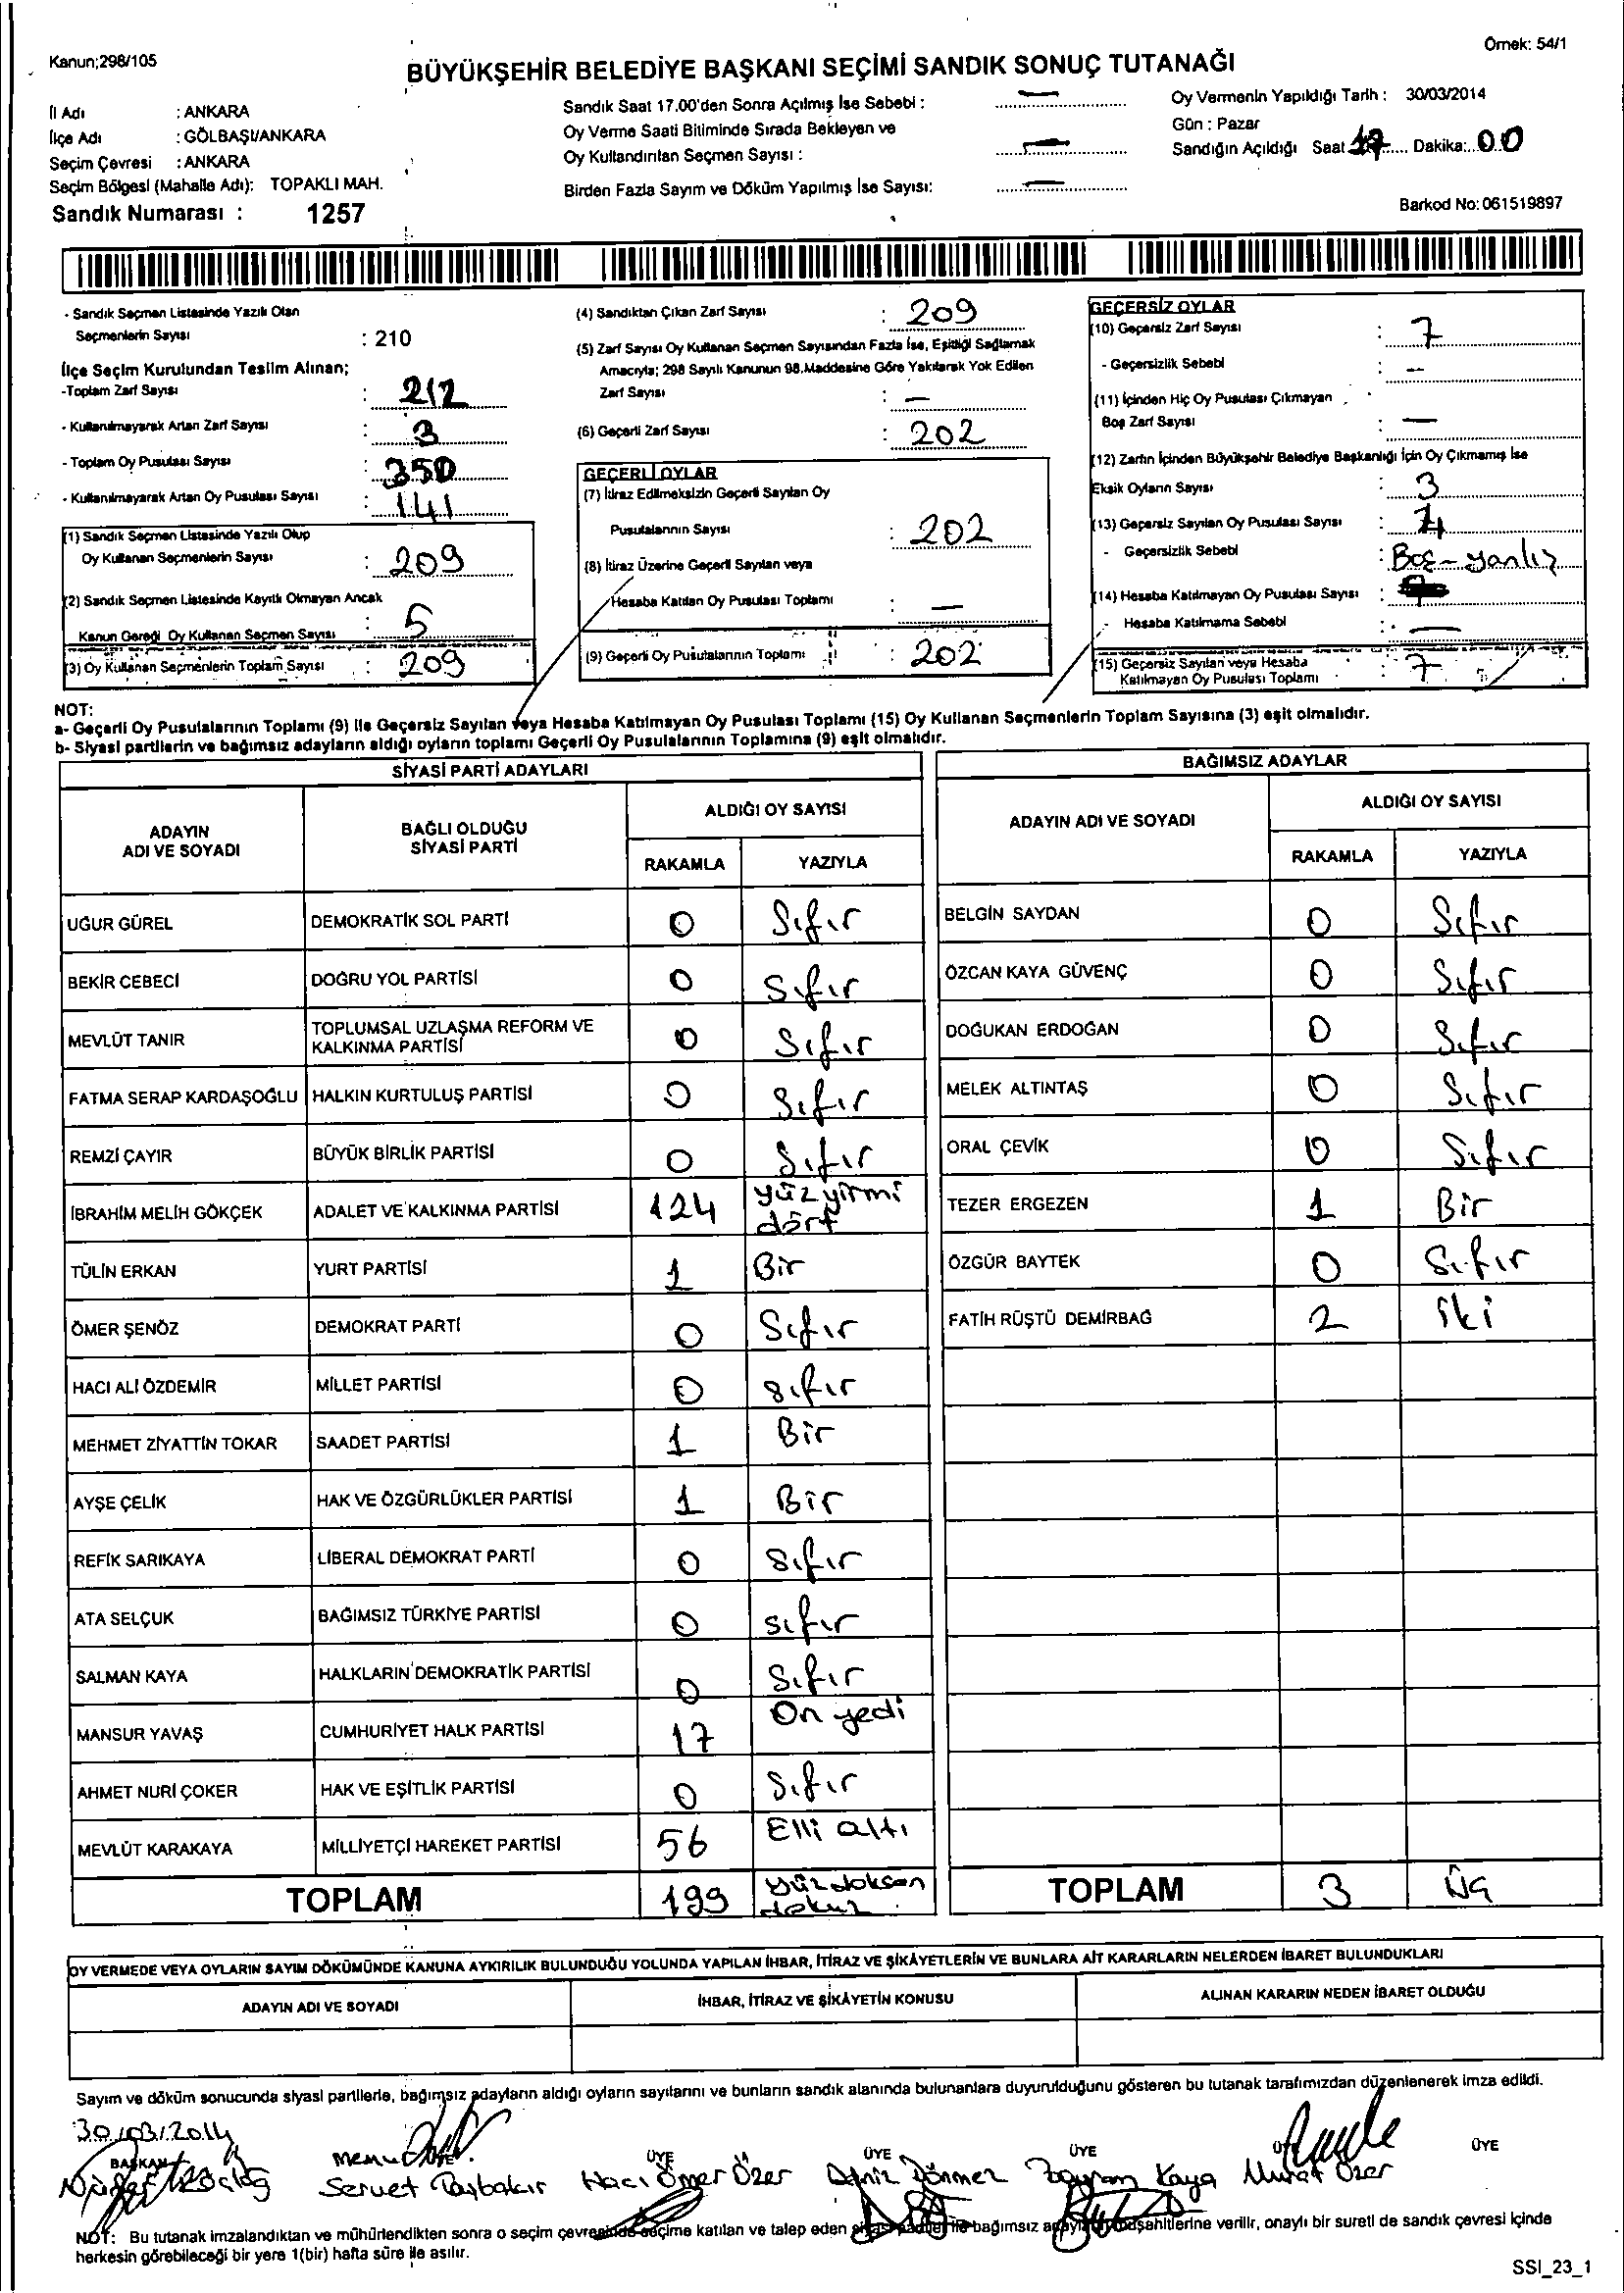 Kanun;298/105
Örnek: 54/1
BÜYÜKŞEHİR BELEDİYE BAŞKANI SEÇİMİ SANDIK SONUÇ TUTANAĞI
İl Adı : ANKARA
İlçe Adı : GÖLBAŞI/ANKARA
Seçim Çevresi : ANKARA
Seçim Bölgesi (Mahalle Adı): TOPAKLI MAH.
Sandık Numarası : 1257
Sandık Saat 17.00'den Sonra Açılmış İse Sebebi : —
Oy Verme Saati Bitiminde Sırada Bekleyen ve
Oy Kullandırılan Seçmen Sayısı : —
Birden Fazla Sayım ve Döküm Yapılmış İse Sayısı: —
Oy Vermenin Yapıldığı Tarih : 30/03/2014
Gün : Pazar
Sandığın Açıldığı Saat 17 Dakika: 00
Barkod No: 061519897
- Sandık Seçmen Listesinde Yazılı Olan
Seçmenlerin Sayısı : 210
İlçe Seçim Kurulundan Teslim Alınan;
-Toplam Zarf Sayısı : 212
- Kullanılmayarak Artan Zarf Sayısı : 3
- Toplam Oy Pusulası Sayısı : 350
- Kullanılmayarak Artan Oy Pusulası Sayısı : 141
(1) Sandık Seçmen Listesinde Yazılı Olup
Oy Kullanan Seçmenlerin Sayısı : 209
(2) Sandık Seçmen Listesinde Kayıtlı Olmayan Ancak
Kanun Gereği Oy Kullanan Seçmen Sayısı : 5
(3) Oy Kullanan Seçmenlerin Toplam Sayısı : 209
(4) Sandıktan Çıkan Zarf Sayısı : 209
(5) Zarf Sayısı Oy Kullanan Seçmen Sayısından Fazla İse, Eşitliği Sağlamak
Amacıyla; 298 Sayılı Kanunun 98.Maddesine Göre Yakılarak Yok Edilen
Zarf Sayısı : —
(6) Geçerli Zarf Sayısı : 202
GEÇERLİ OYLAR
(7) İtiraz Edilmeksizin Geçerli Sayılan Oy
Pusulalarının Sayısı : 202
(8) İtiraz Üzerine Geçerli Sayılan veya
Hesaba Katılan Oy Pusulası Toplamı : —
(9) Geçerli Oy Pusulalarının Toplamı : 202
GEÇERSİZ OYLAR
(10) Geçersiz Zarf Sayısı : 7
- Geçersizlik Sebebi : —
(11) İçinden Hiç Oy Pusulası Çıkmayan
Boş Zarf Sayısı : —
(12) Zarfın İçinden Büyükşehir Belediye Başkanlığı İçin Oy Çıkmamış İse
Eksik Oyların Sayısı : 3
(13) Geçersiz Sayılan Oy Pusulası Sayısı : 4
- Geçersizlik Sebebi : Boş-yanlız
(14) Hesaba Katılmayan Oy Pusulası Sayısı :
- Hesaba Katılmama Sebebi : —
(15) Geçersiz Sayılan veya Hesaba
Katılmayan Oy Pusulası Toplamı : 7
NOT:
a- Geçerli Oy Pusulalarının Toplamı (9) ile Geçersiz Sayılan veya Hesaba Katılmayan Oy Pusulası Toplamı (15) Oy Kullanan Seçmenlerin Toplam Sayısına (3) eşit olmalıdır.
b- Siyasi partilerin ve bağımsız adayların aldığı oyların toplamı Geçerli Oy Pusulalarının Toplamına (9) eşit olmalıdır.
SİYASİ PARTİ ADAYLARI
ADAYIN ADI VE SOYADI
BAĞLI OLDUĞU SİYASİ PARTİ
ALDIĞI OY SAYISI
RAKAMLA YAZIYLA
UĞUR GÜREL DEMOKRATİK SOL PARTİ 0 Sıfır
BEKİR CEBECİ DOĞRU YOL PARTİSİ 0 Sıfır
MEVLÜT TANIR TOPLUMSAL UZLAŞMA REFORM VE KALKINMA PARTİSİ 0 Sıfır
FATMA SERAP KARDAŞOĞLU HALKIN KURTULUŞ PARTİSİ 0 Sıfır
REMZİ ÇAYIR BÜYÜK BİRLİK PARTİSİ 0 Sıfır
İBRAHİM MELİH GÖKÇEK ADALET VE KALKINMA PARTİSİ 124 yüz yirmi dört
TÜLİN ERKAN YURT PARTİSİ 1 Bir
ÖMER ŞENÖZ DEMOKRAT PARTİ 0 Sıfır
HACI ALİ ÖZDEMİR MİLLET PARTİSİ 0 sıfır
MEHMET ZİYATTİN TOKAR SAADET PARTİSİ 1 Bir
AYŞE ÇELİK HAK VE ÖZGÜRLÜKLER PARTİSİ 1 Bir
REFİK SARIKAYA LİBERAL DEMOKRAT PARTİ 0 sıfır
ATA SELÇUK BAĞIMSIZ TÜRKİYE PARTİSİ 0 sıfır
SALMAN KAYA HALKLARIN DEMOKRATİK PARTİSİ 0 Sıfır
MANSUR YAVAŞ CUMHURİYET HALK PARTİSİ 17 On yedi
AHMET NURİ ÇOKER HAK VE EŞİTLİK PARTİSİ 0 Sıfır
MEVLÜT KARAKAYA MİLLİYETÇİ HAREKET PARTİSİ 56 Elli altı
TOPLAM 199 yüz doksan dokuz
BAĞIMSIZ ADAYLAR
ADAYIN ADI VE SOYADI
ALDIĞI OY SAYISI
RAKAMLA YAZIYLA
BELGİN SAYDAN 0 Sıfır
ÖZCAN KAYA GÜVENÇ 0 Sıfır
DOĞUKAN ERDOĞAN 0 Sıfır
MELEK ALTINTAŞ 0 Sıfır
ORAL ÇEVİK 0 Sıfır
TEZER ERGEZEN 1 Bir
ÖZGÜR BAYTEK 0 Sıfır
FATİH RÜŞTÜ DEMİRBAĞ 2 iki
TOPLAM 3 Üç
OY VERMEDE VEYA OYLARIN SAYIM DÖKÜMÜNDE KANUNA AYKIRILIK BULUNDUĞU YOLUNDA YAPILAN İHBAR, İTİRAZ VE ŞİKÂYETLERİN VE BUNLARA AİT KARARLARIN NELERDEN İBARET BULUNDUKLARI
ADAYIN ADI VE SOYADI İHBAR, İTİRAZ VE ŞİKÂYETİN KONUSU ALINAN KARARIN NEDEN İBARET OLDUĞU
Sayım ve döküm sonucunda siyasi partilerle, bağımsız adayların aldığı oyların sayılarını ve bunların sandık alanında bulunanlara duyurulduğunu gösteren bu tutanak tarafımızdan düzenlenerek imza edildi.
30/03/2014
BAŞKAN ÜYE ÜYE ÜYE ÜYE
Servet Hacı Ömer Özer Deniz Dönmez Bayram Kaya Murat Özer
NOT: Bu tutanak imzalandıktan ve mühürlendikten sonra o seçim çevresinde seçime katılan ve talep eden siyasi partiler ile bağımsız adayların müşahitlerine verilir, onaylı bir sureti de sandık çevresi içinde
herkesin görebileceği bir yere 1(bir) hafta süre ile asılır.
SSI_23_1